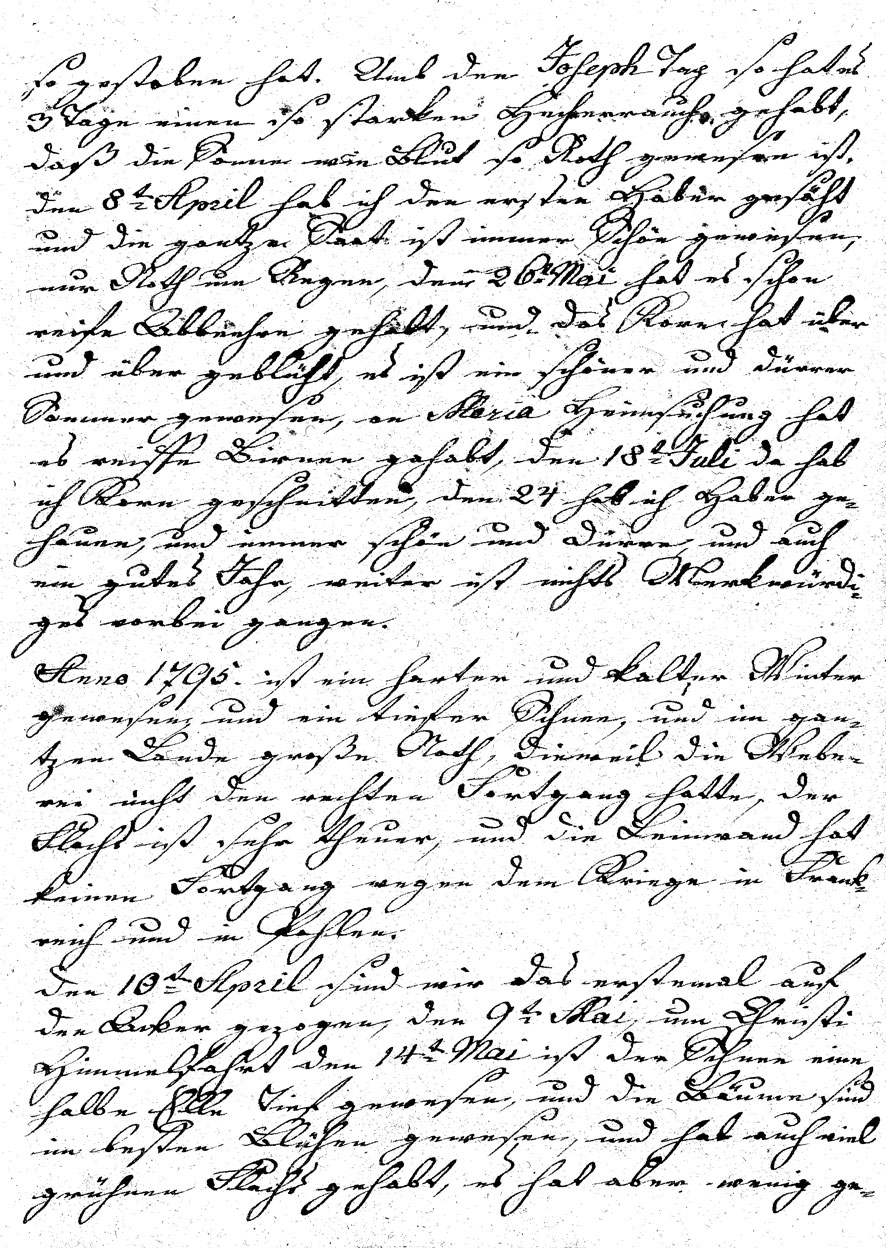 so gestoben hat. Umb den Joseph Tag so hat es
3 Tage einen so starken Heherrauch gehabt,
daß die Sonne wie Blut so Roth gewesen ist.
den 8t April hab ich den ersten Haber gesäht
und die gantze Saat ist immer Schön gewesen,
nur Noth um Regen, den 26t Mai hat es schon
reife Ebbeehre gehabt, und das Korn hat über
und über geblüht, es ist ein schöner und dürrer
Sommer gewesen, an Maria Heimsuchung hat
es reiffe Birnen gehabt, den 18t Juli da hab
ich Korn geschnitten, den 24 hab ich Haber ge=
hauen, und immer schön und dürre und auch
ein gutes Jahr, weiter ist nichts Merkwürdi=
ges vorbei gangen.
Anno 1795. ist ein harter und kalter Winter
gewesen, und ein tiefer Schnee, und im gan=
tzen Lande große Noth, dieweil die Webe=
rei nicht den rechten Fortgang hatte, der
Flachs ist sehr theuer, und die Leinwand hat
keinen Fortgang wegen dem Kriege in Frank=
reich und in Pohlen.
den 10t April sind wir das erstemal auf
den Acker gezogen, den 9t Mai, um Christi
Himmelfahrt den 14t Mai ist der Schnee eine
halbe Elle Tief gewesen, und die Bäume sind
im besten Blühen gewesen, und hat auch viel
grühnen Flachs gehabt, es hat aber wenig ge=